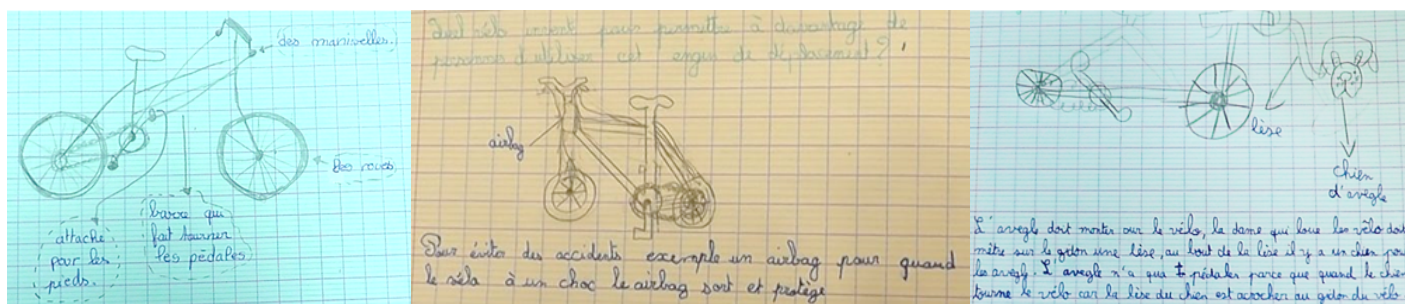 des manivelles.
Des roues
attache
pour les
pieds.
barre qui
fait tourner
les pédales
Quel vélo invent pour permettre à davantage de
personnes d'utiliser cet engin de déplacement?
airbag
Pour éviter des accidents exemple un airbag pour quand
le véla à un choc le airbag sort et protège
lèse
chien
d'avegle
L'avegle doit monter sur le vélo, la dame qui loue les vélo doit
mètre sur le gidon une lèse, au bout de la lèse il y a un chien pour
les avegle. L'avegle n'a que pédales parce que quand le chien
tourne le vélo car la lèse du chien est acrocher au gidon du vélo